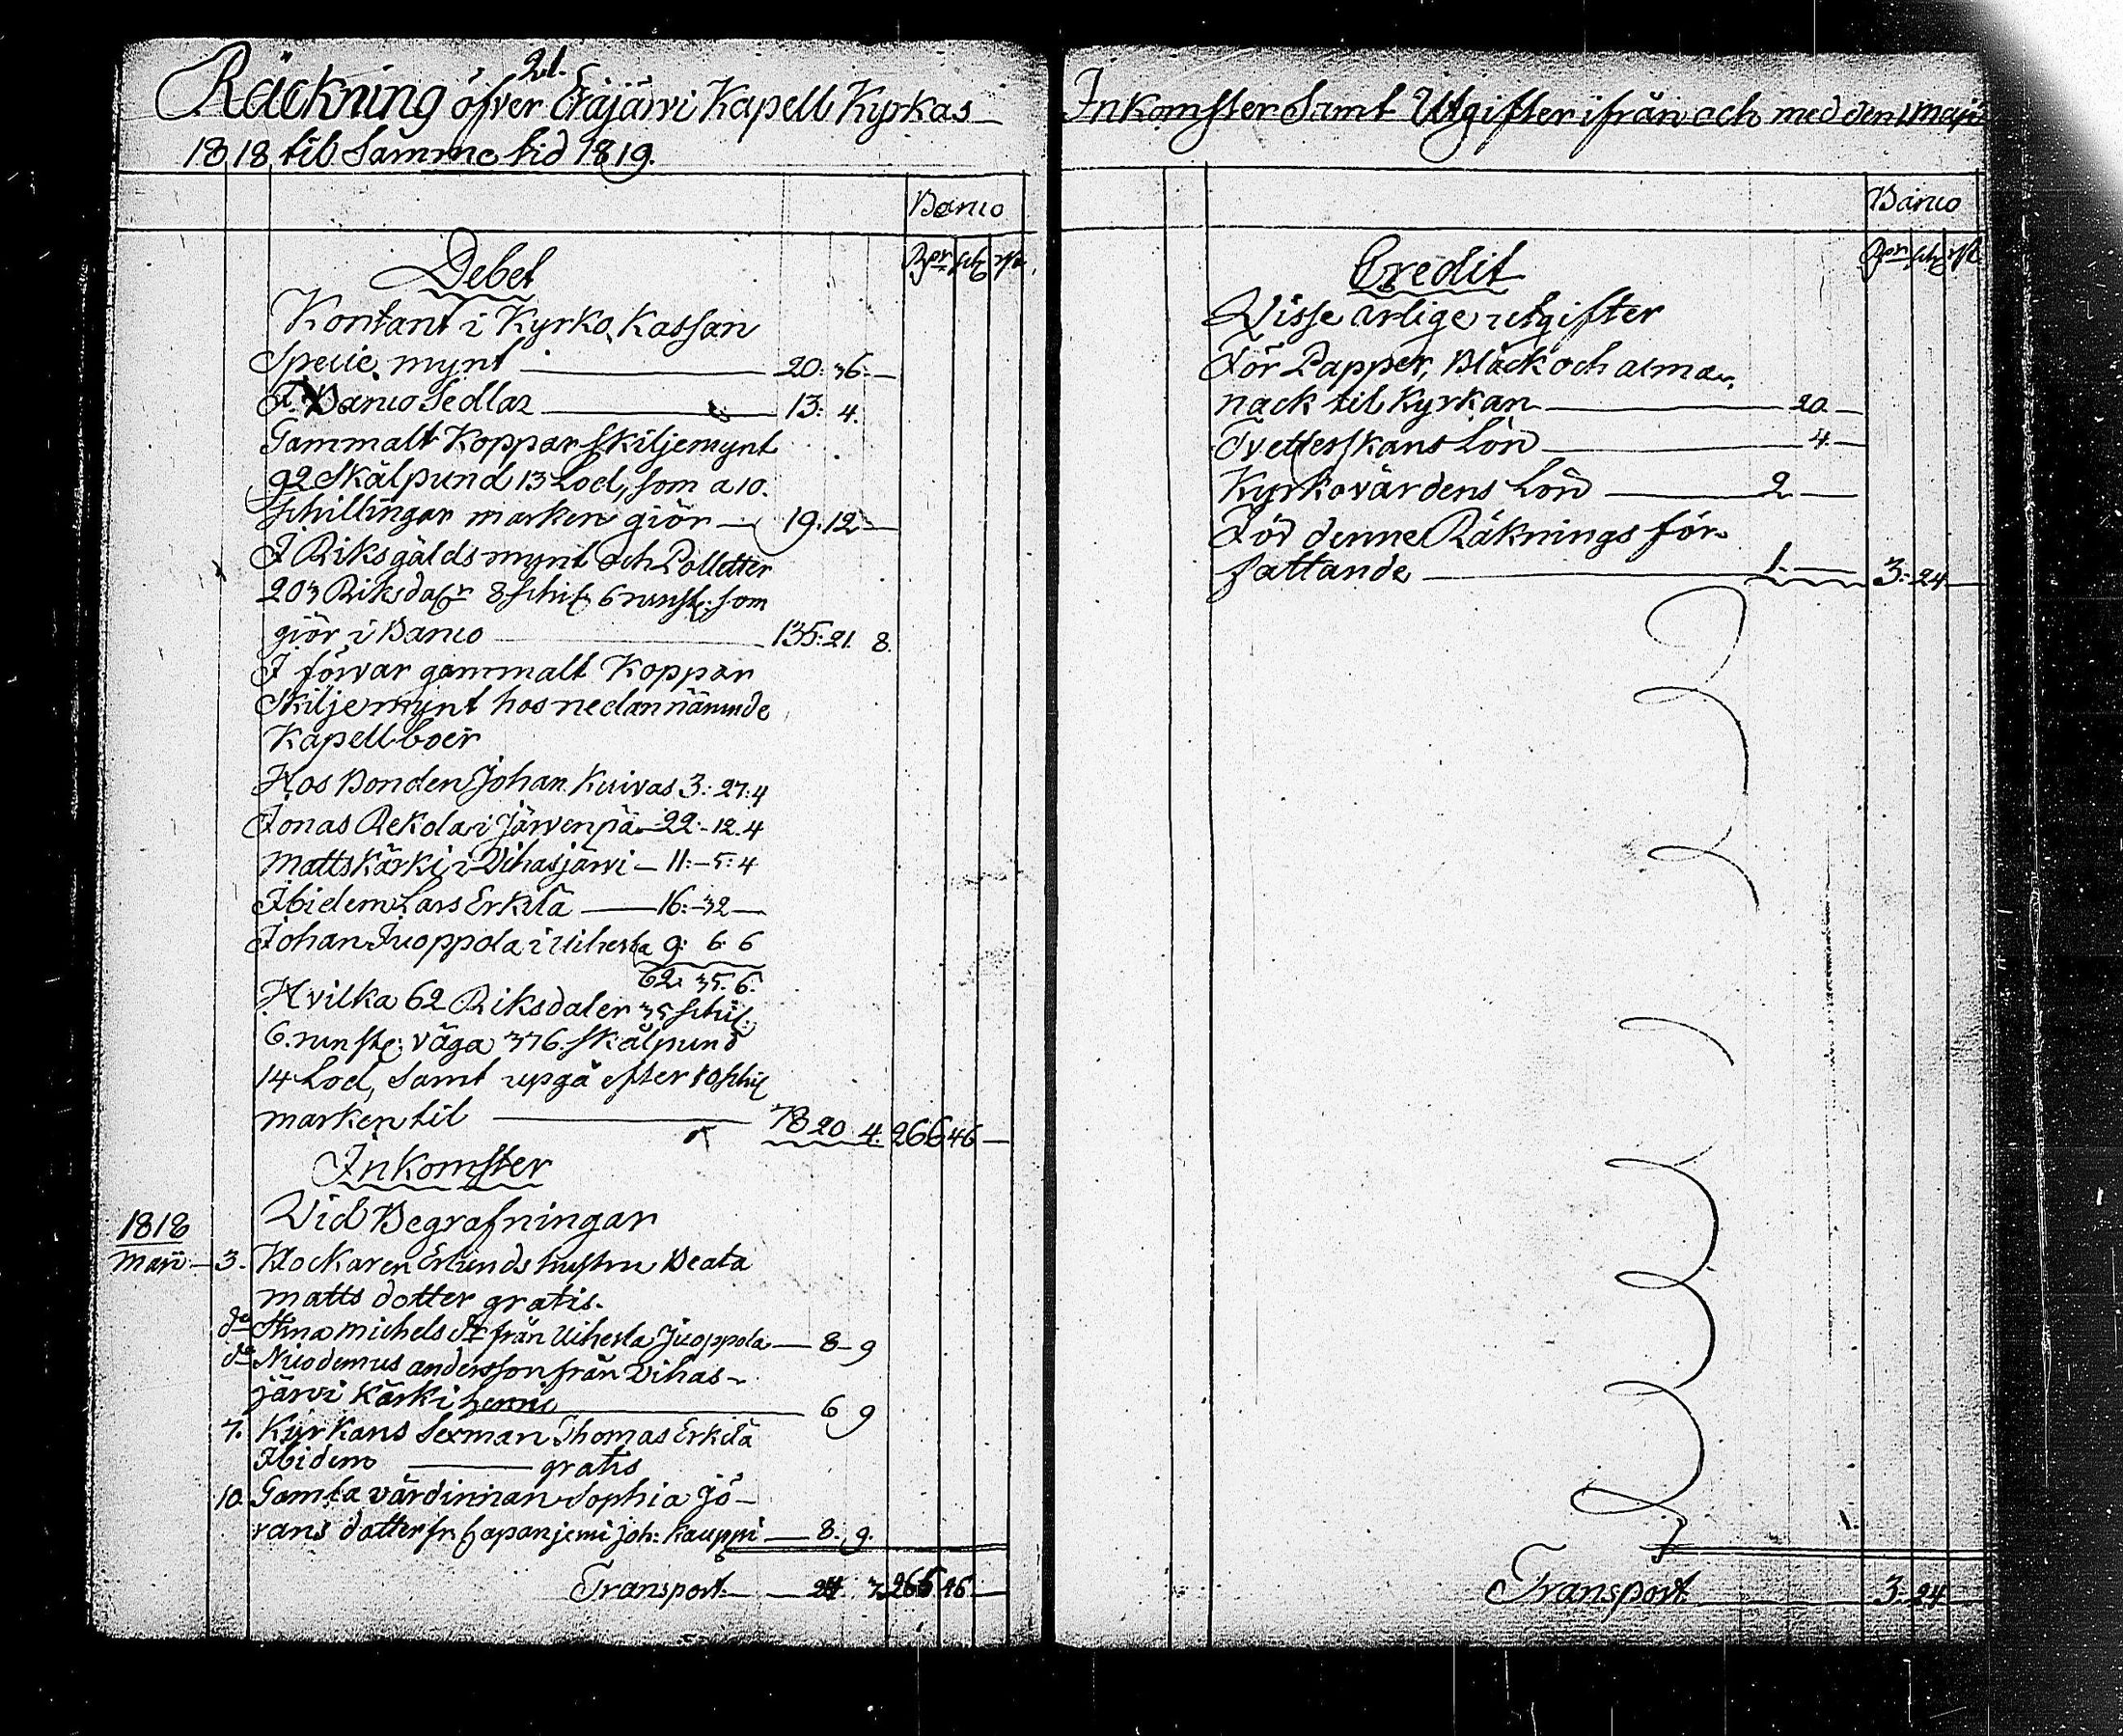 21.
Räckning öfver Eräjärvi Kapell Kyrkas
1818 til Samme tid 1819.
Banco
Debet
Kontant i Kyrko Kassan
Specie mynt 20: 36: —
I Banco Sedlar 13: 4.
Gammalt Koppar Skiljemynt
92 Skålpund 13 Lod, som a 10.
schillingar marken giör — 19: 12 —
I Riksgälds mynt och Polletter
203 Riksdal 8 schil 6 runst: som
giör i Banco 135: 21. 8.
I förvar gammalt Koppar
Skiljemynt hos nedannämnde
Kapellboer
Hos Bonden Johan Kuivas 3: 27: 4
Jonas Rekola i Järvenpä — 22: 12. 4
Matts Kärki i Vihasjärvi — 11: 5: 4
Ibidem Lars Erkilä — 16: 32 —
Johan Juoppola i Uiherla 9: 6: 6
62: 35. 6.
Hvilka 62 Riksdaler 35 schil:
6. runst: väga 376. Skålpund
14 Lod, Samt upgå efter 10 schil
marken til 78 20 4. 266 46 —
Inkomster
Vid Begrafningar
1818
Maii — 3. Klockaren Erlunds hustru Beata
Matts dotter gratis.
do Stina Michels dr från Uiherla Juoppola — 8 — 9
do Nicodemus andersson från Vihas-
järvi Kärki 6 9
7. Kyrkans Sexman Thomas Erkilä
Ibidem gratis
10. Gamla värdinnan Sophia Jö-
rans dotter fr. Hapanjemi Joh: Kauppi — 8. 9.
Transport — 24 3 266 46 —
Inkomster Samt Utgifter ifrån och med den 1 Maji
Banco
Credit
Visse årlige utgifter
För Papper, Bläck och alma-
nack til Kyrkan 20 —
Tvetterskans Lön 4 —
Kyrkovärdens Lön 2 —
För denne Räknings för-
fattande 1. — 3: 24 —
Transport 3: 24